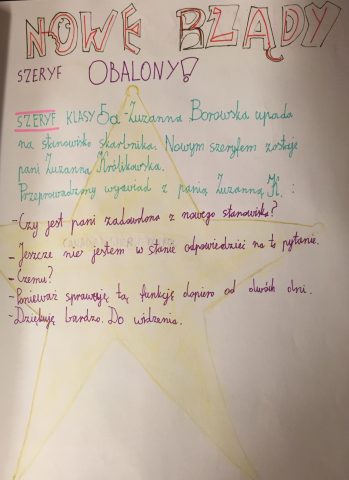 NOWE RZĄDY
SZERYF OBALONY!
SZERYF KLASY 5a Zuzanna Borowska upada
na stanowisko skarbnika. Nowym szeryfem zostaje
pani Zuzanna Królikowska.
Przeprowadzmy wywiad z panią Zuzanną K. :
- Czy jest pani zadowolona z nowego stanowiska?
- Jeszcze nie jestem w stanie odpowiedzieć na to pytanie.
- Czemu?
- Ponieważ sprawuję tą funkcję dopiero od dwóch dni.
- Dziękuję bardzo. Do widzenia.